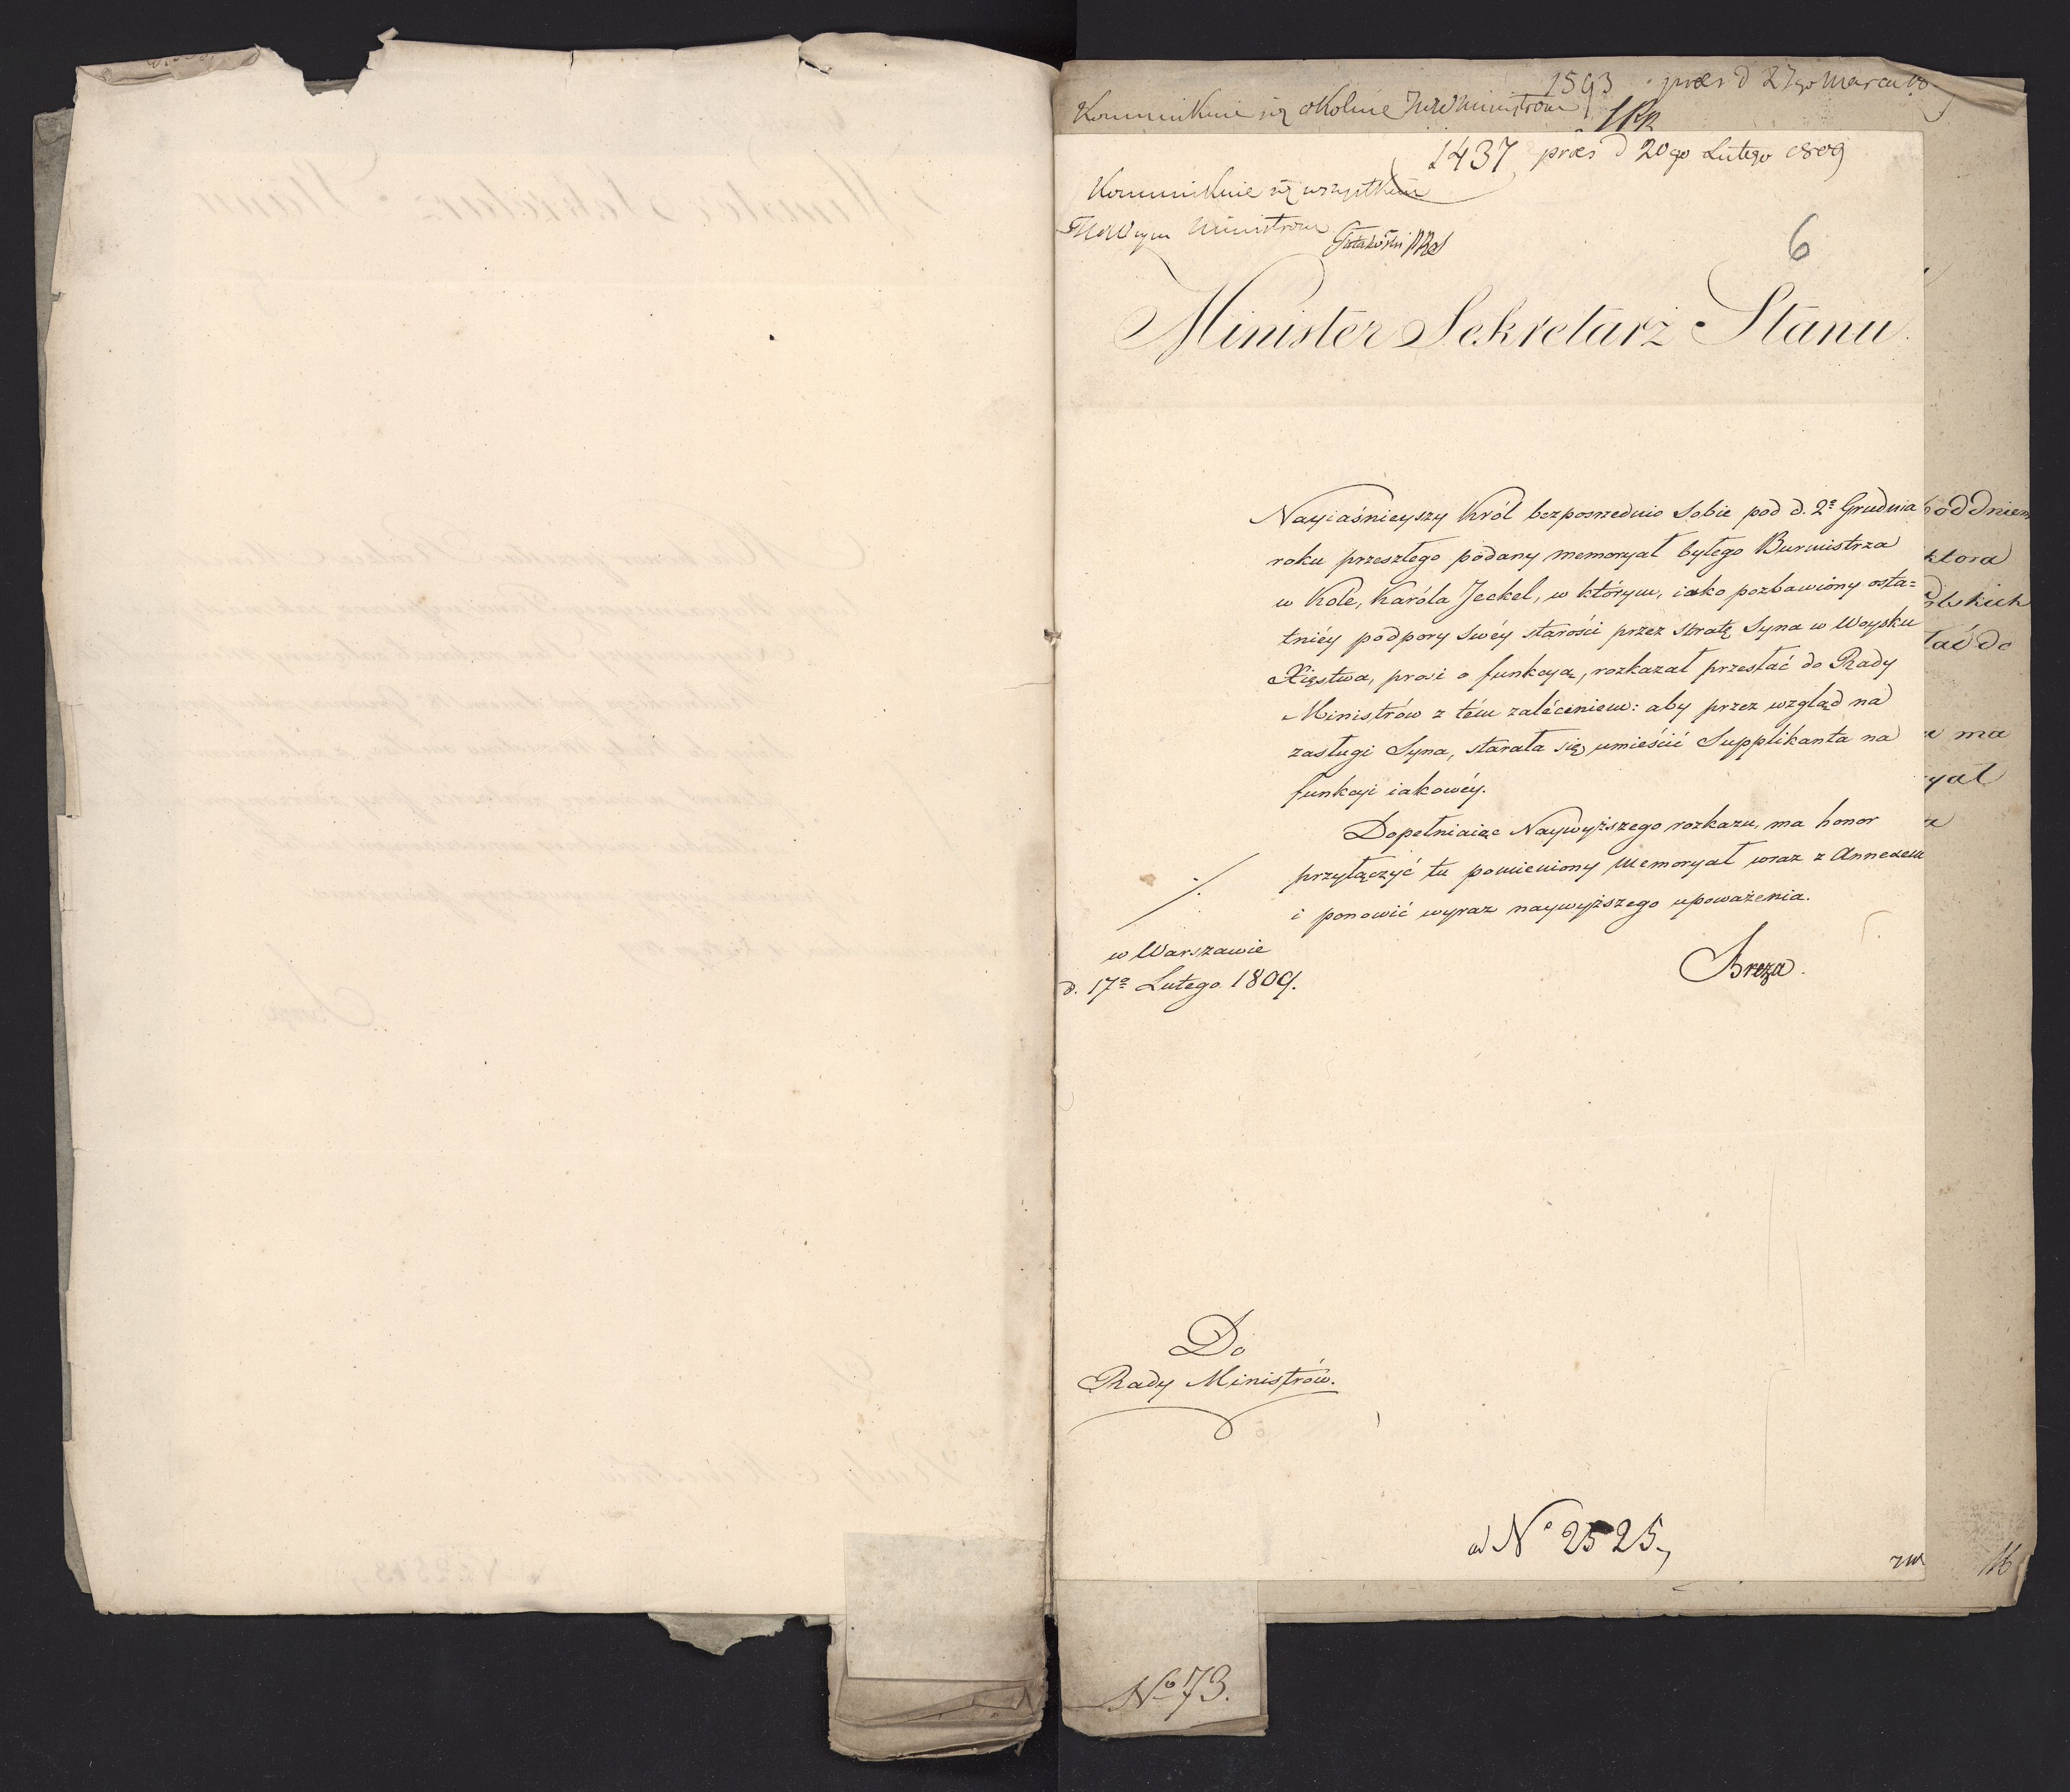 1593 præs d 27go Marca
Kommunikuie się okolnie JWW Ministrom
1437 præs d 20go Lutego 1809
Kommunikuie się wszystkim
JWWym Ministrom
6
Minister Sekretarz Stanu.
Nayiaśnieyszy Król bezpośrzednio Sobie pod d. 2º Grudnia
roku przeszłego podany memoryał byłego Burmistrza
w Kole, Karóla Jeckel, w którym, iako pozbawiony osta=
tniéy podpory swéy starości przez stratę Syna w Woysku
Xięstwa, prosi o funkcyą, rozkazał przesłać do Rady
Ministrów z tém zaléceniem: aby przez wzgląd na
zasługi Syna, starała się umieścić Supplikanta na
funkcyi iakowéy.
Dopełniaiąc Naywyższego rozkazu, ma honor
przyłączyć tu pomieniony memoryał wraz z Annexem
i ponowić wyraz naywyższego upoważenia.
w Warszawie
d. 17º Lutego 1809.
Breza.
Do
Rady Ministrów.
ad Nº 2525,
Nº 73.
pod dniem
ktora
ma
yał
16